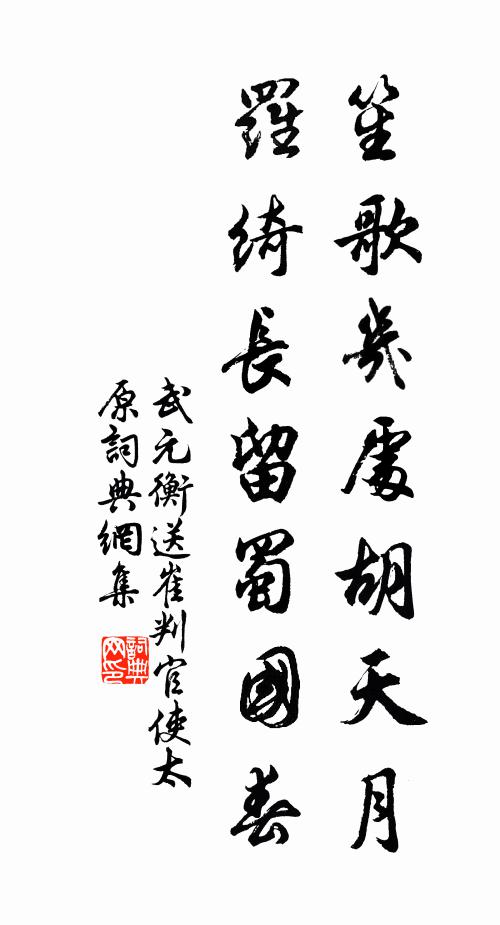 笙歌幾處胡天月
羅綺長留蜀國春
武元衡送崔判官使太
原詞典網集
詞典
网印